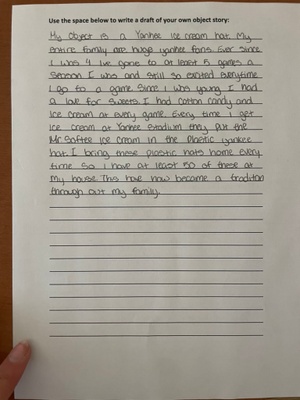 Use the space below to write a draft of your own object story:
My Object is a Yankee Ice cream hat. My
entire family are huge yankee fans. Ever since
I was 4 Ive gone to at least 5 games a
season I was and still so excited everytime
I go to a game. Since I was young I had
a love for sweets. I had cotton candy and
ice cream at every game. Every time I get
ice cream at Yankee Stadium they put the
Mr. Softee ice cream in the Plastic yankee
hat. I bring these plastic hats home every
time so I have at least 50 of these at
my house. This have now become a tradition
through out my family.